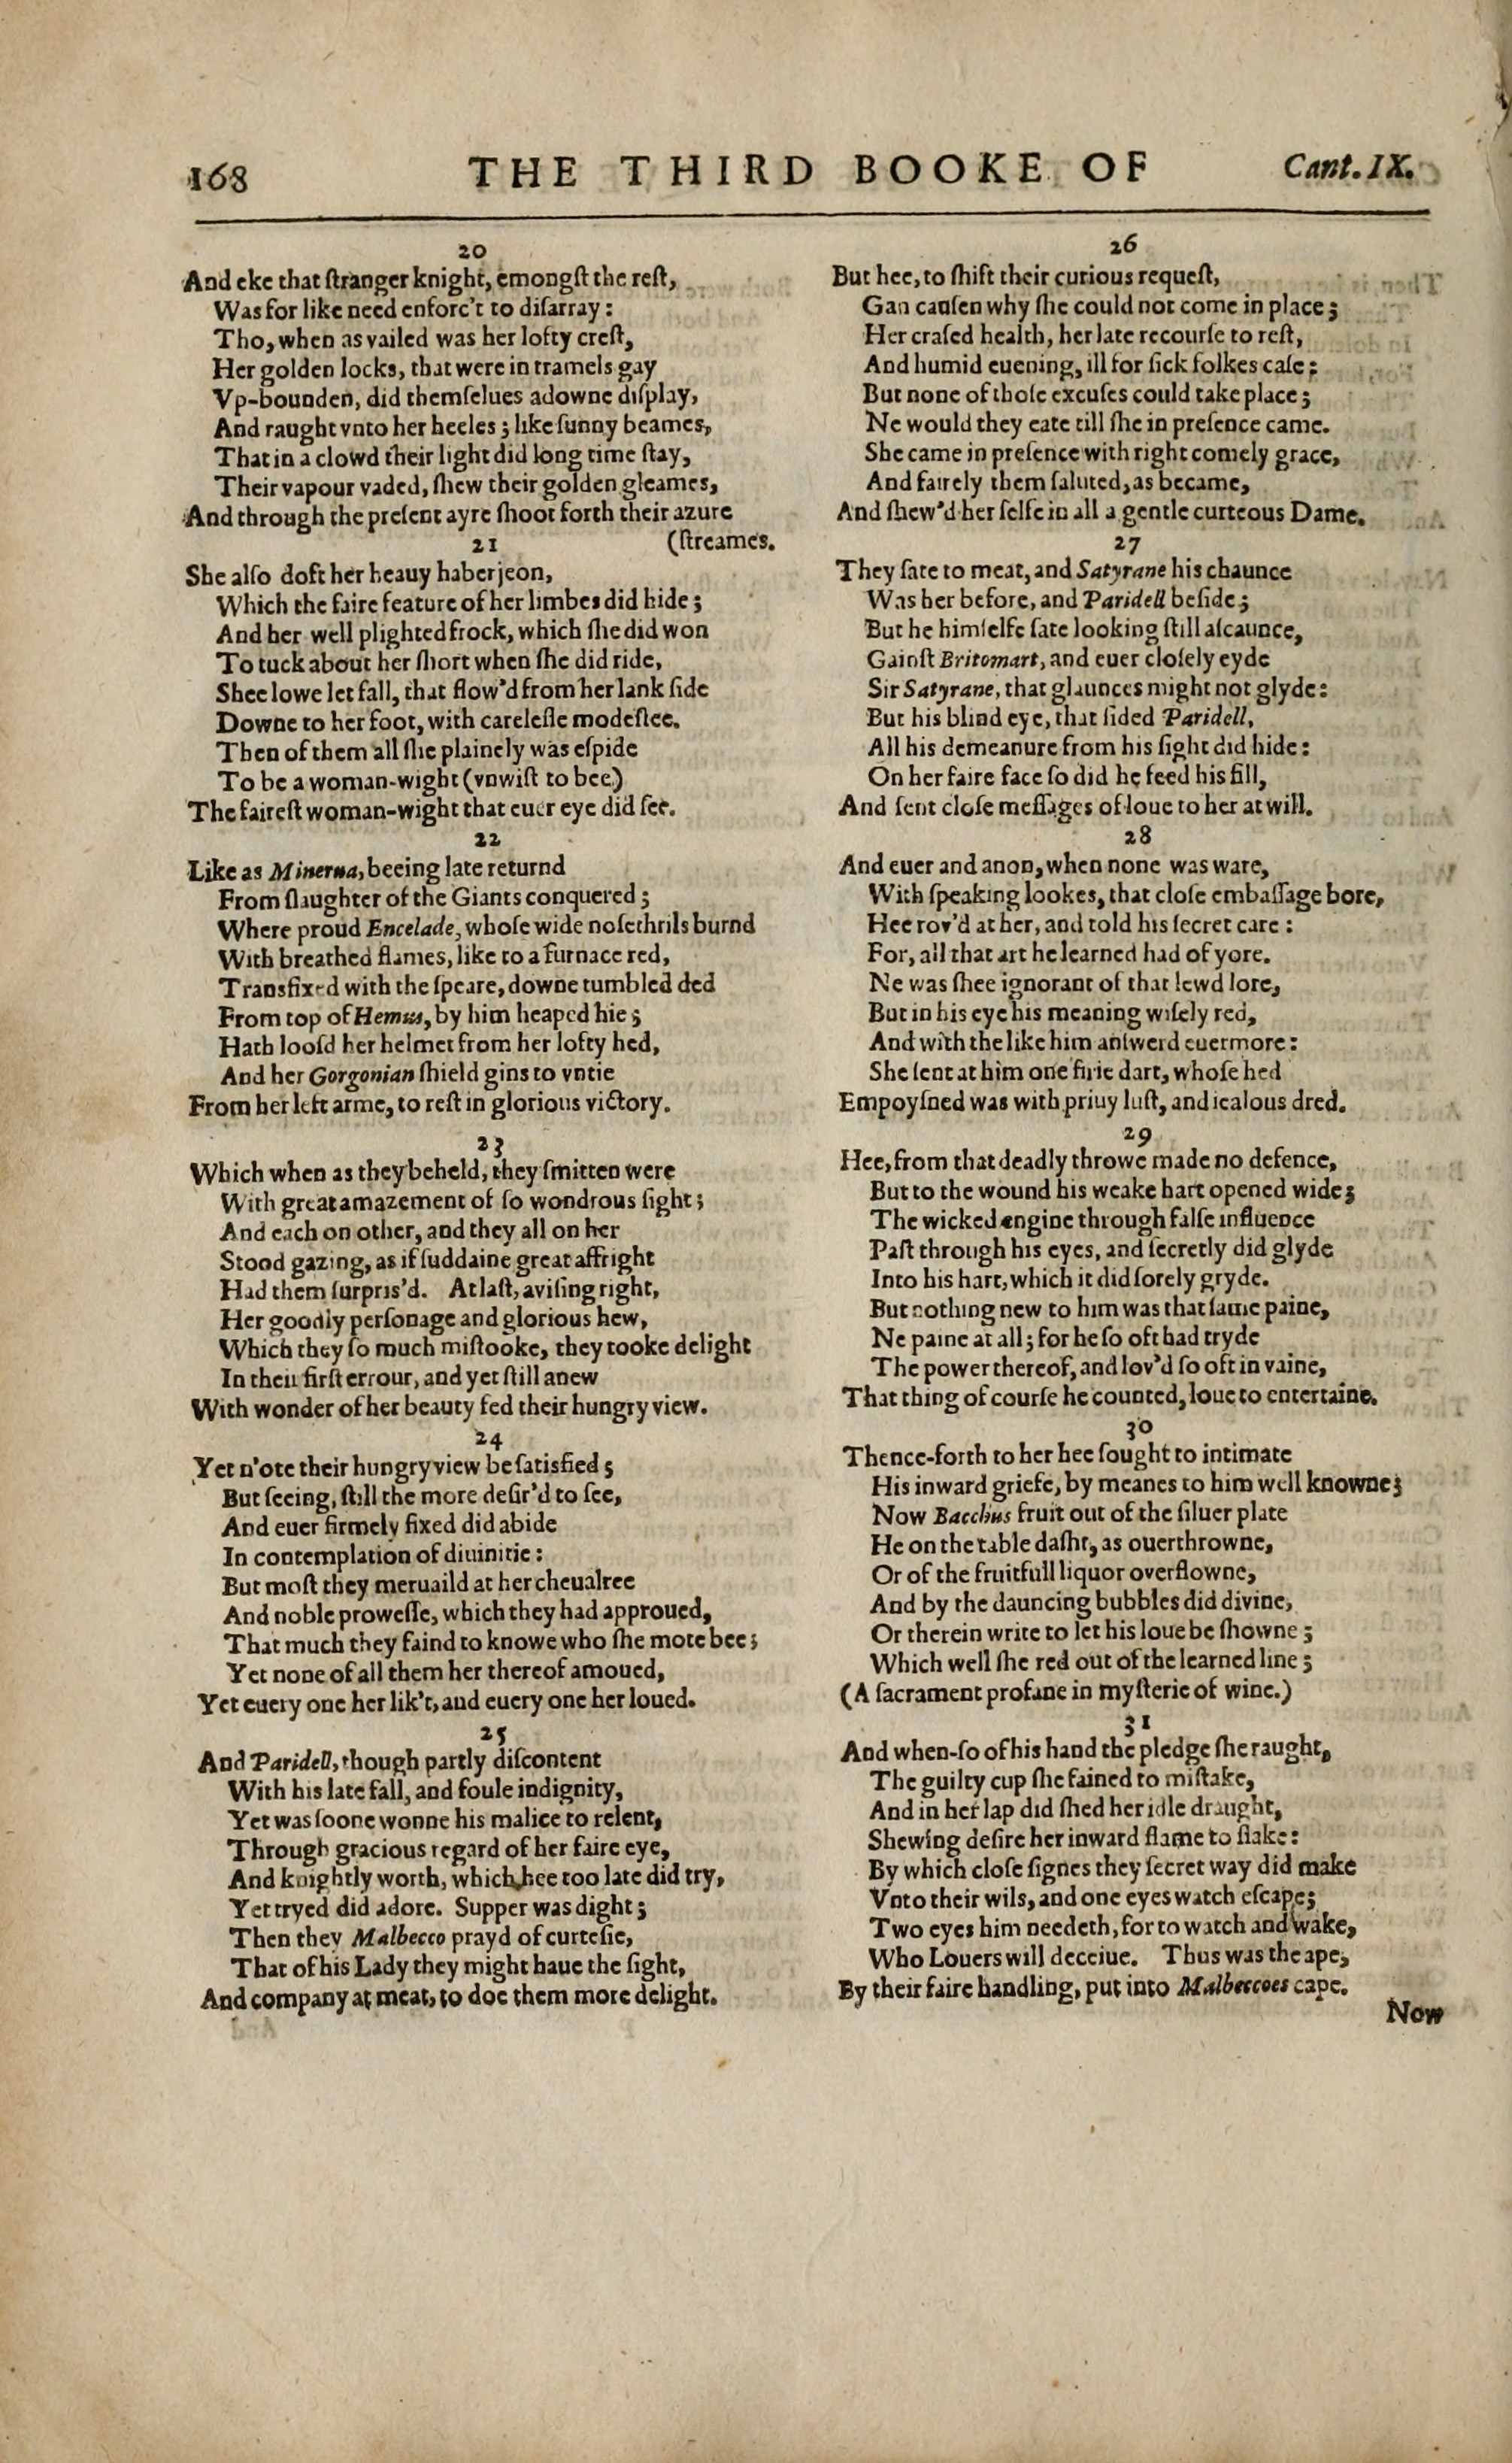 168 THE THIRD BOOKE OF Cant. IX.
20
And eke that ſtranger knight, emongſt the reſt,
Was for like need enforc't to diſarray:
Tho, when as vailed was her lofty creſt,
Her golden locks, that were in tramels gay
Vp-bounden, did themſelues adowne diſplay,
And raught vnto her heeles; like ſunny beames,
That in a clowd their light did long time ſtay,
Their vapour vaded, ſhew their golden gleames,
And through the preſent ayre ſhoot forth their azure
(ſtreames.
21
She alſo doft her heauy haberjeon,
Which the faire feature of her limbes did hide;
And her well plighted frock, which ſhe did won
To tuck about her ſhort when ſhe did ride,
Shee lowe let fall, that flow'd from her lank ſide
Downe to her foot, with careleſſe modeſtee.
Then of them all ſhe plainely was eſpide
To be a woman-wight (vnwiſt to bee)
The faireſt woman-wight that euer eye did ſee.
22
Like as Minerua, beeing late returnd
From ſlaughter of the Giants conquered;
Where proud Encelade, whoſe wide noſethrils burnd
With breathed flames, like to a furnace red,
Transfixed with the ſpeare, downe tumbled ded
From top of Hemus, by him heaped hie;
Hath looſd her helmet from her lofty hed,
And her Gorgonian ſhield gins to vntie
From her left arme, to reſt in glorious victory.
23
Which when as they beheld, they ſmitten were
With great amazement of ſo wondrous ſight;
And each on other, and they all on her
Stood gazing, as if ſuddaine great affright
Had them ſurpris'd. At laſt, aviſing right,
Her goodly perſonage and glorious hew,
Which they ſo much miſtooke, they tooke delight
In their firſt errour, and yet ſtill anew
With wonder of her beauty fed their hungry view.
24
Yet n'ote their hungry view be ſatisfied;
But ſeeing, ſtill the more deſir'd to ſee,
And euer firmely fixed did abide
In contemplation of diuinitie:
But moſt they meruaild at her cheualree
And noble proweſſe, which they had approued,
That much they faind to knowe who ſhe mote bee;
Yet none of all them her thereof amoued,
Yet euery one her lik't, and euery one her loued.
25
And Paridell, though partly diſcontent
With his late fall, and foule indignity,
Yet was ſoone wonne his malice to relent,
Through gracious regard of her faire eye,
And knightly worth, which hee too late did try,
Yet tryed did adore. Supper was dight;
Then they Malbecco prayd of curteſie,
That of his Lady they might haue the ſight,
And company at meat, to doe them more delight.
26
But hee, to ſhift their curious requeſt,
Gan cauſen why ſhe could not come in place;
Her craſed health, her late recourſe to reſt,
And humid euening, ill for ſick folkes caſe:
But none of thoſe excuſes could take place;
Ne would they eate till ſhe in preſence came.
She came in preſence with right comely grace,
And fairely them ſaluted, as became,
And ſhew'd her ſelfe in all a gentle curteous Dame.
27
They ſate to meat, and Satyrane his chaunce
Was her before, and Paridell beſide;
But he himſelfe ſate looking ſtill aſcaunce,
Gainſt Britomart, and euer cloſely eyde
Sir Satyrane, that glaunces might not glyde:
But his blind eye, that ſided Paridell,
All his demeanure from his ſight did hide:
On her faire face ſo did he feed his fill,
And ſent cloſe meſſages of loue to her at will.
28
And euer and anon, when none was ware,
With ſpeaking lookes, that cloſe embaſſage bore,
Hee rov'd at her, and told his ſecret care:
For, all that art he learned had of yore.
Ne was ſhee ignorant of that lewd lore,
But in his eye his meaning wiſely red,
And with the like him anſwerd euermore:
She ſent at him one firie dart, whoſe hed
Empoyſned was with priuy luſt, and iealous dred.
29
Hee, from that deadly throwe made no defence,
But to the wound his weake hart opened wide;
The wicked engine through falſe influence
Paſt through his eyes, and ſecretly did glyde
Into his hart, which it did ſorely gryde.
But nothing new to him was that ſame paine,
Ne paine at all; for he ſo oft had tryde
The power thereof, and lov'd ſo oft in vaine,
That thing of courſe he counted, loue to entertaine.
30
Thence-forth to her hee ſought to intimate
His inward griefe, by meanes to him well knowne;
Now Bacchus fruit out of the ſiluer plate
He on the table daſht, as ouerthrowne,
Or of the fruitfull liquor overflowne,
And by the dauncing bubbles did divine,
Or therein write to let his loue be ſhowne;
Which well ſhe red out of the learned line;
(A ſacrament profane in myſterie of wine.)
31
And when-ſo of his hand the pledge ſhe raught,
The guilty cup ſhe fained to miſtake,
And in her lap did ſhed her idle draught,
Shewing deſire her inward flame to ſlake:
By which cloſe ſignes they ſecret way did make
Vnto their wils, and one eyes watch eſcape;
Two eyes him needeth, for to watch and wake,
Who Louers will deceiue. Thus was the ape,
By their faire handling, put into Malbeccoes cape.
Now